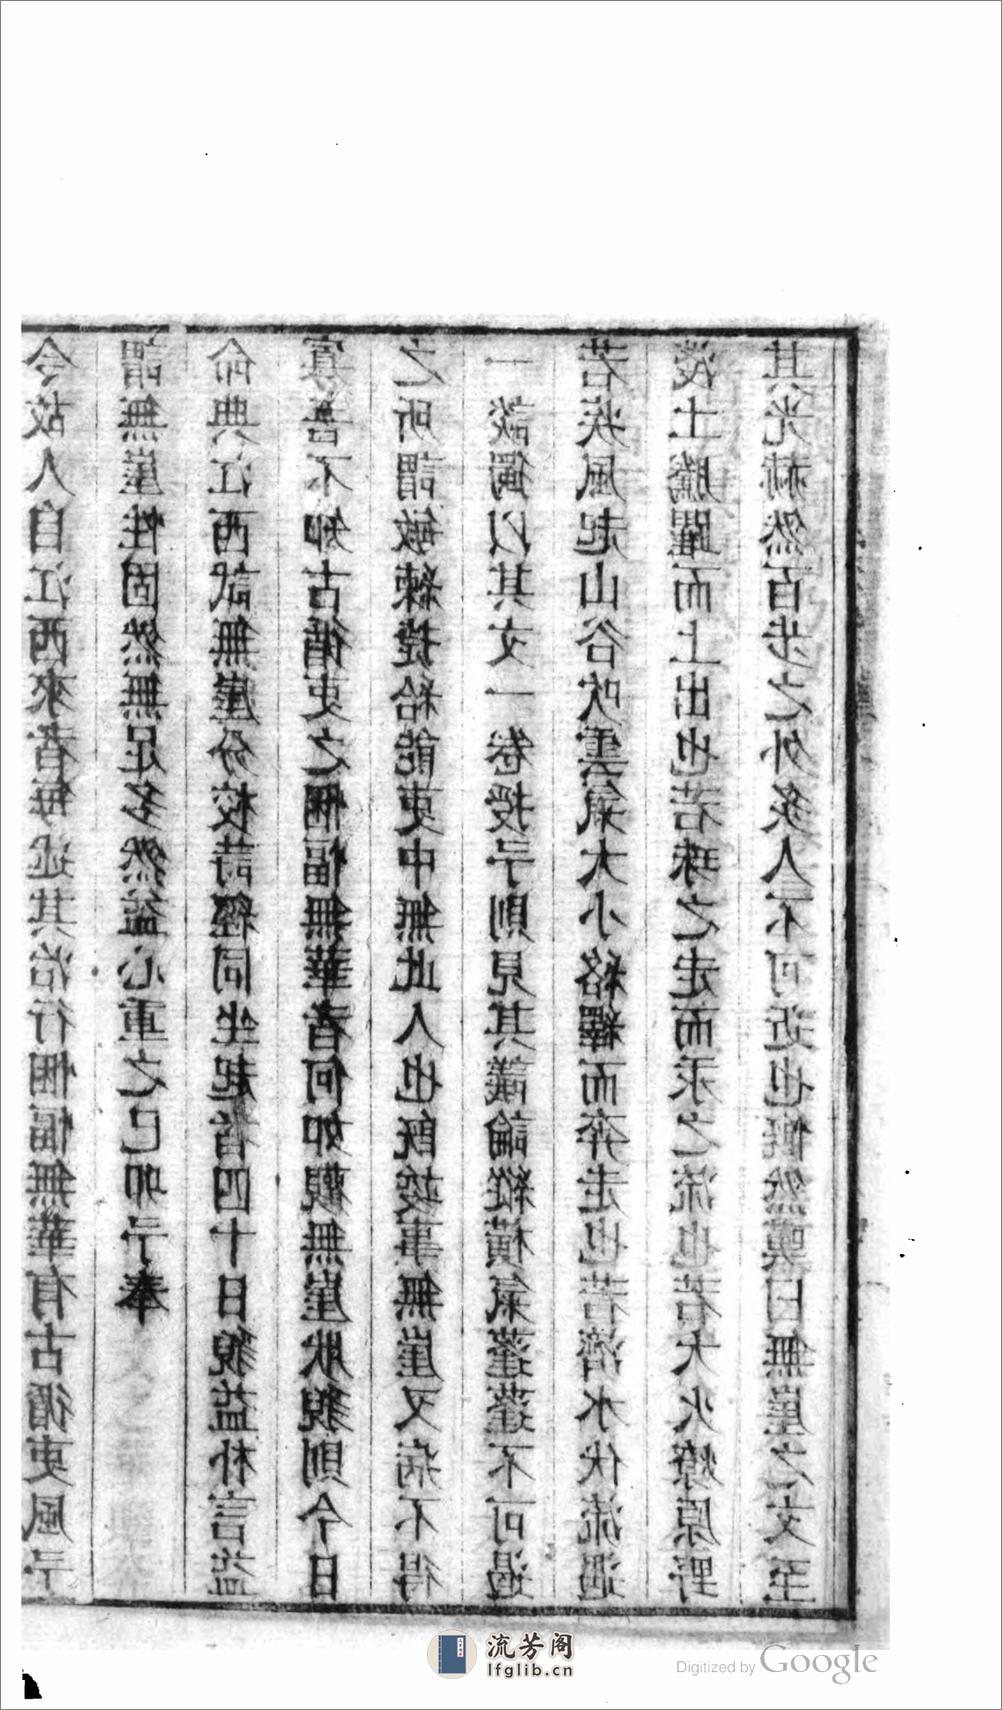 今故人自江西來者每述其治行悃愊無華有古循吏風予
謂無崖性固然無足多然益心重之己卯予奉
命典江西試無崖分校詩經同坐起者四十日貌益朴言益
寡若不知古循吏之悃愊無華者何如觀無崖狀貌則今日
之所謂敏練捷給能吏中無此人也旣竣事無崖又病不得
一談獨以其文一卷授予則見其議論縱橫氣蓬蓬不可遏
若疾風起山谷吹雲氣大小絡繹而奔走也若濟水伏流遇
淺土騰躍而上出也若珠之走而汞之流也若大火燎原野
其光赫然百步之外炙人不可近也慨然嘆曰無崖之文至
流芳阁
lfglib.cn
Digitized by Google